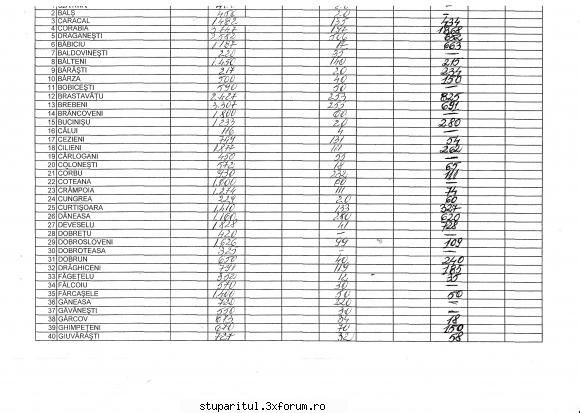 2 BALŞ 20 —
3 CARACAL 1.482 135 434
4 CORABIA 3.747 197
5 DRAGANEŞTI 2.552 506 652
6 BĂBICIU 1.187 17 663
7 BALDOVINEŞTI 220 35 —
8 BĂLTENI 1.450 140 215
9 BĂRĂŞTI 217 20 234
10 BÂRZA 500 40 150
11 BOBICEŞTI 590 50 —
12 BRASTAVĂŢU 2.427 253 825
13 BREBENI 3.307 255 691
14 BRÂNCOVENI 1.800 60 —
15 BUCINIŞU 1.233 20 280
16 CĂLUI 116 4 —
17 CEZIENI 749 131 54
18 CILIENI 1.877 101 262
19 CÂRLOGANI 450 55 —
20 COLONEŞTI 572 18 65
21 CORBU 930 232 111
22 COTEANA 1.800 60 —
23 CRÂMPOIA 1.274 111 74
24 CUNGREA 229 20 60
25 CURTIŞOARA 1.410 133 327
26 DĂNEASA 1.160 280 620
27 DEVESELU 1.828 41 728
28 DOBREŢU 420 — —
29 DOBROSLOVENI 1.626 99 109
30 DOBROTEASA 325 — —
31 DOBRUN 650 40 240
32 DRĂGHICENI 791 119 185
33 FĂGEŢELU 352 12 35
34 FĂLCOIU 570 30 —
35 FĂRCAŞELE 1.400 50 50
36 GĂNEASA 720 220 —
37 GĂVĂNEŞTI 550 30 —
38 GÂRCOV 893 84 18
39 GHIMPEŢENI 670 70 150
40 GIUVĂRĂŞTI 727 32 58
stuparitul.3xforum.ro